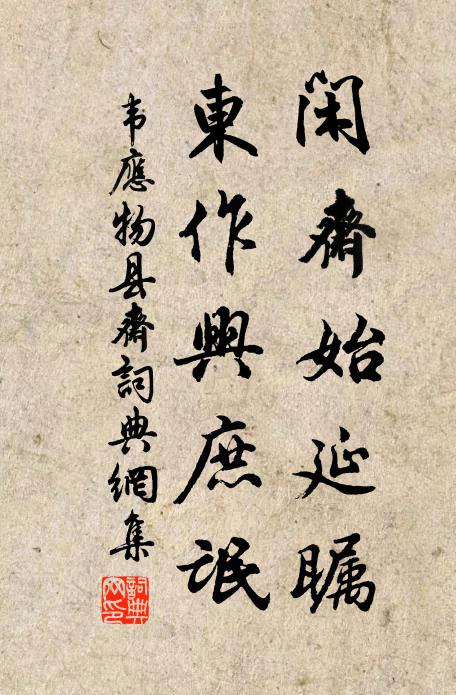 闲齋始延瞩
東作興庶氓
韦應物县齋詞典網集
詞典網印